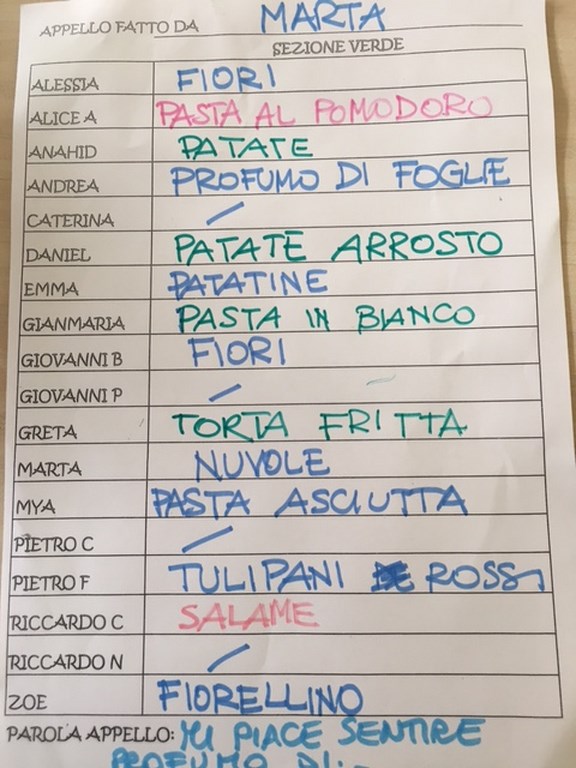 APPELLO FATTO DA MARTA
SEZIONE VERDE
ALESSIA FIORI
ALICE A PASTA AL POMODORO
ANAHID PATATE
ANDREA PROFUMO DI FOGLIE
CATERINA /
DANIEL PATATE ARROSTO
EMMA PATATINE
GIANMARIA PASTA IN BIANCO
GIOVANNI B FIORI
GIOVANNI P /
GRETA TORTA FRITTA
MARTA NUVOLE
MYA PASTA ASCIUTTA
PIETRO C /
PIETRO F TULIPANI ROSSI
RICCARDO C SALAME
RICCARDO N /
ZOE FIORELLINO
PAROLA APPELLO: MI PIACE SENTIRE
PROFUMO DI: